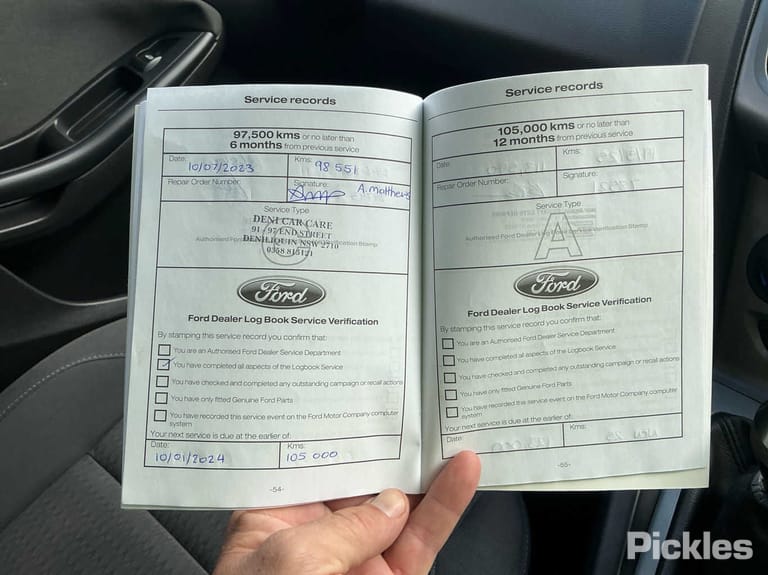 Service records
97,500 kms or no later than
6 months from previous service
Date: 10/07/2023 Kms: 98 551
Repair Order Number: Signature: A. matthews
Service Type
DENI CAR CARE
91 - 97 END STREET
DENILIQUIN NSW 2710
Authorised Ford Verification Stamp
Ford
Ford Dealer Log Book Service Verification
By stamping this service record you confirm that:
You are an Authorised Ford Dealer Service Department
You have completed all aspects of the Logbook Service
You have checked and completed any outstanding campaign or recall actions
You have only fitted Genuine Ford Parts
You have recorded this service event on the Ford Motor Company computer
system
Your next service is due at the earlier of:
Date: 10/01/2024 Kms: 105 000
-54-
Service records
105,000 kms or no later than
12 months from previous service
Date: Kms:
Repair Order Number: Signature:
Service Type
A
Authorised Ford Dealer Log Book Service Verification Stamp
Ford
Ford Dealer Log Book Service Verification
By stamping this service record you confirm that:
You are an Authorised Ford Dealer Service Department
You have completed all aspects of the Logbook Service
You have checked and completed any outstanding campaign or recall actions
You have only fitted Genuine Ford Parts
You have recorded this service event on the Ford Motor Company computer
system
Your next service is due at the earlier of:
Date: Kms:
-55-
Pickles